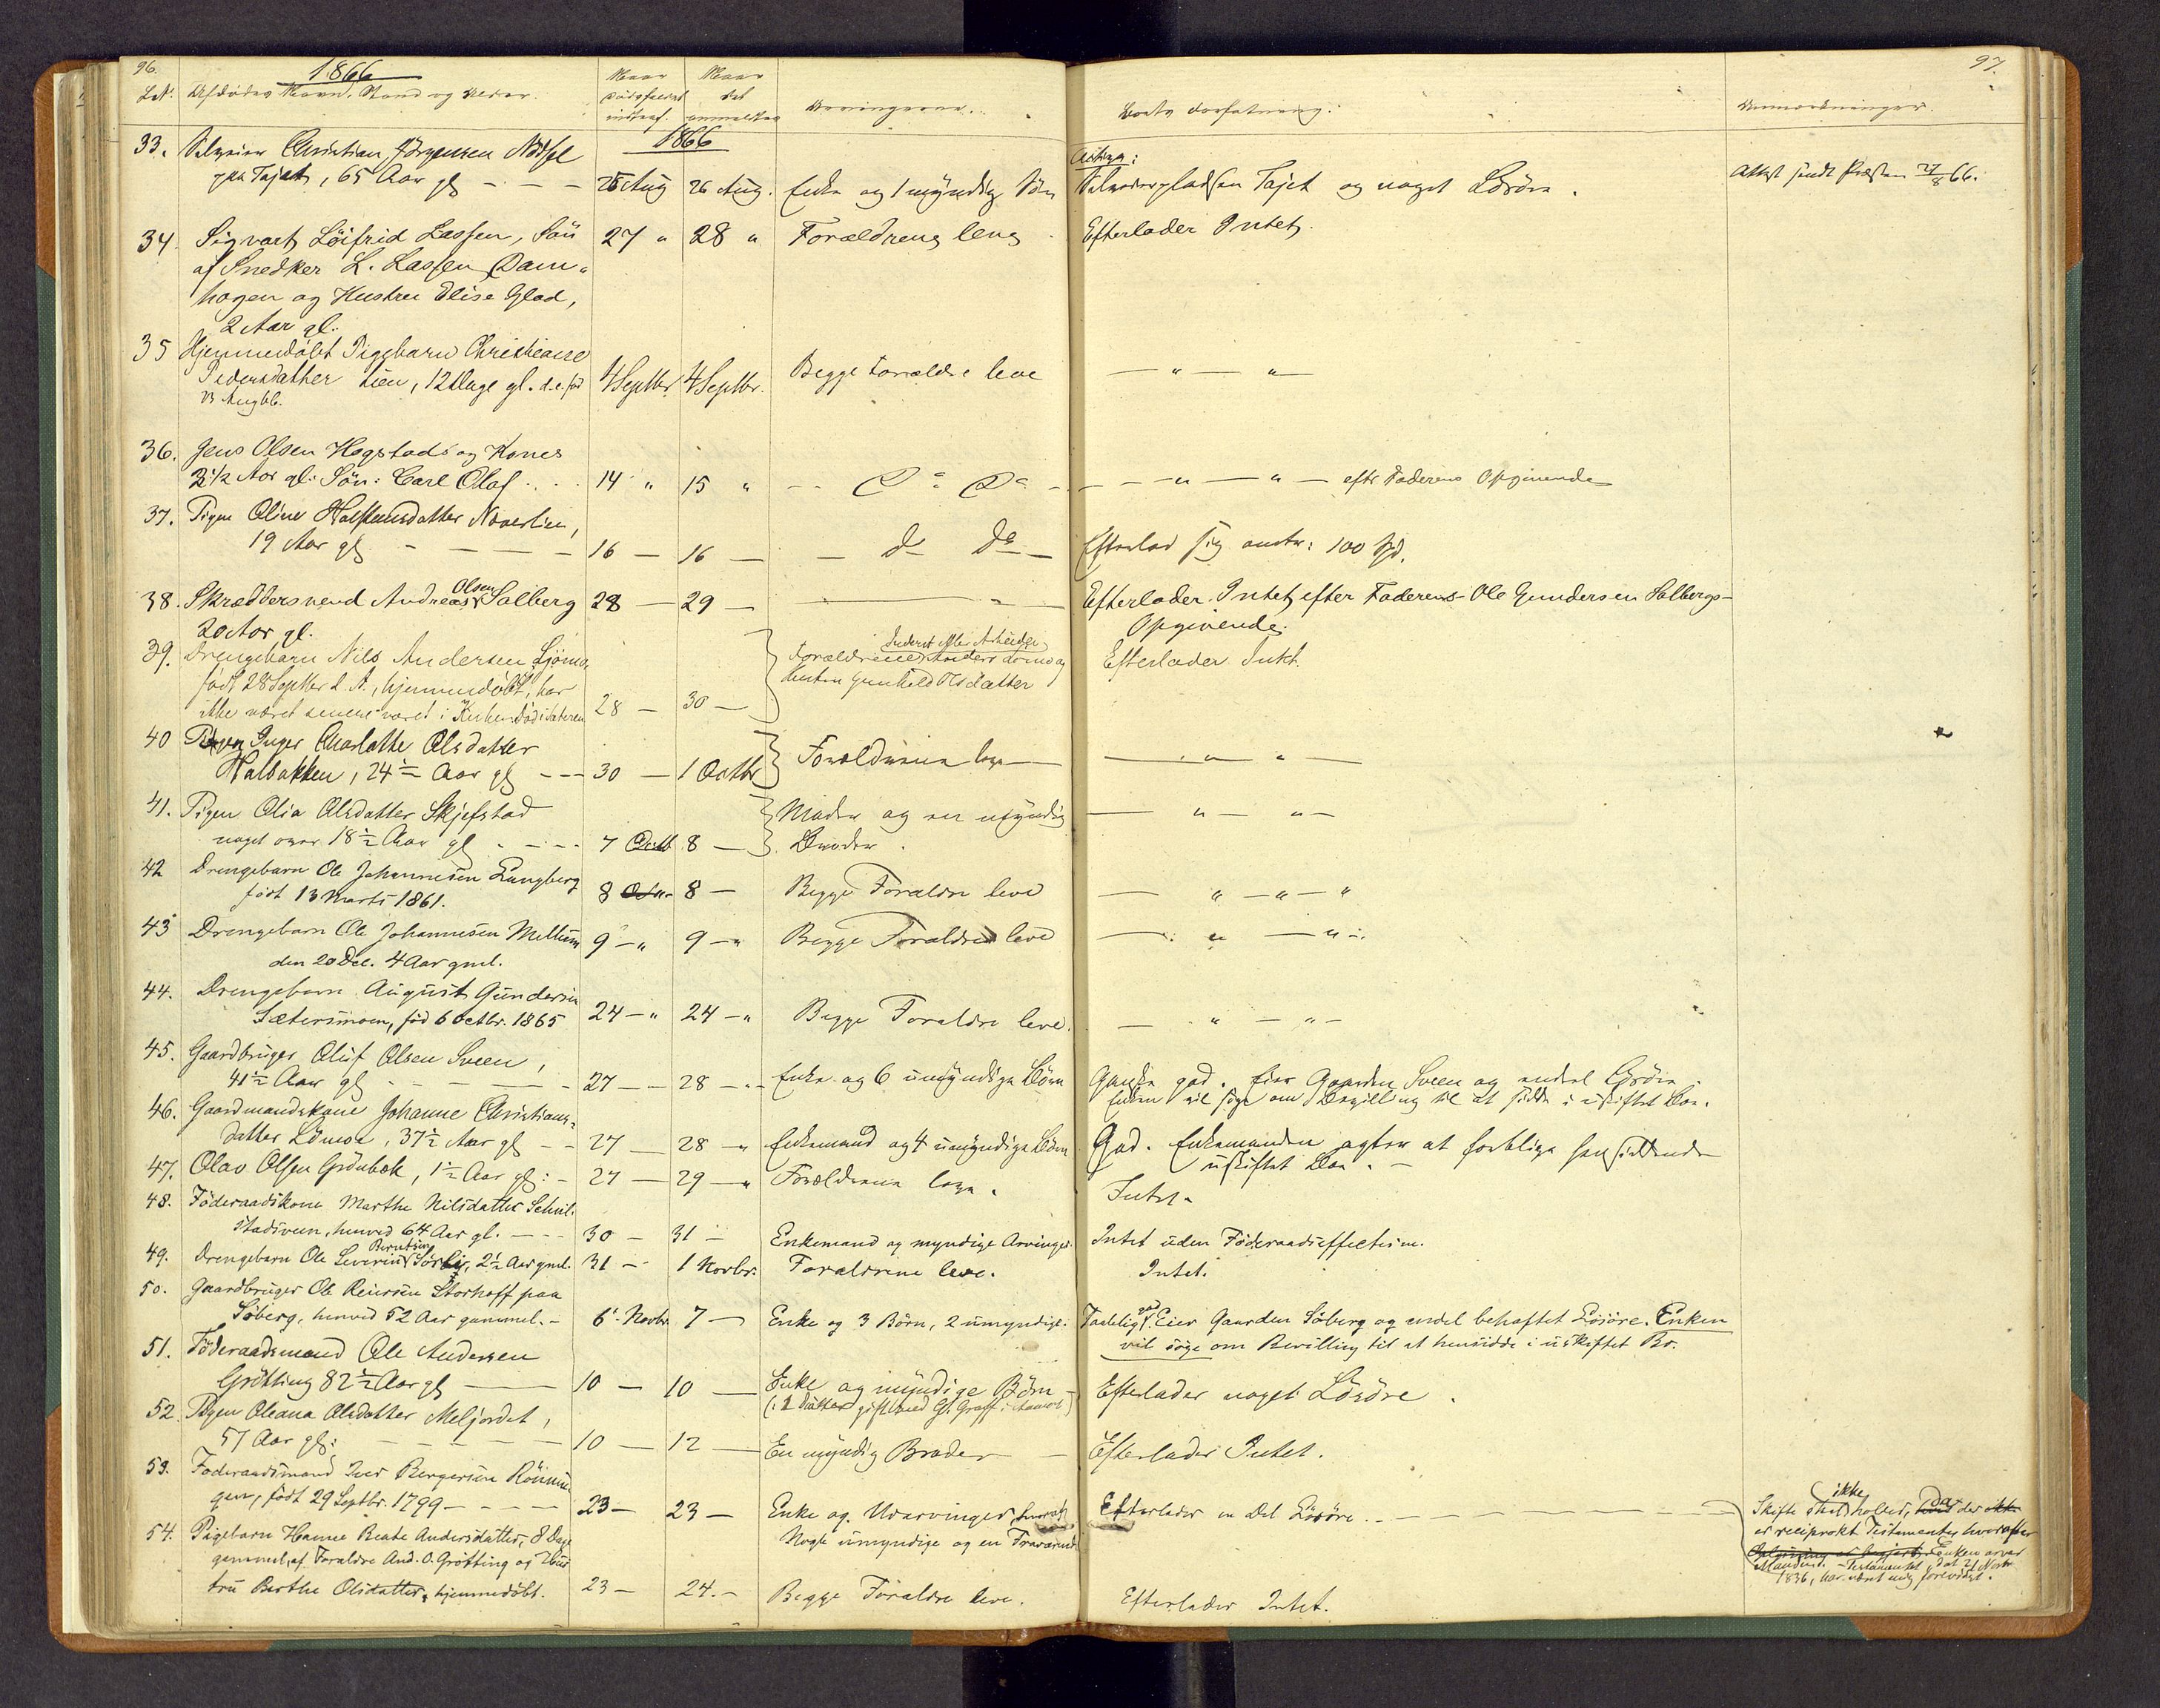 96.
1866
Afdødes Navn, Stand og Alder.
Naar
Naar
det
anmeldtes
Arvingerne.
Boets Forfatning.
Anmærkninger.
97.
1866
33. Christian Jörgensen
paa Tajet, 65 Aar gl - - - 25 Aug 26 Aug. Enke og 1 myndig Sön
Tajet og noget Lösöre.
Attest sendt Præsten 27/8 66.
34. Sigvart Löifrid Lassen, Sön 27 " 28 " Forældrene leve Efterlader Intet.
af Snedker L. Lassen Dam-
hagen og Hustru Elise Glad,
2 Aar gl.
35 Hjemmedöbt Pigebarn Christiane
Pedersdatter Lien, 12 Dage gl. d.e. föd 4 Septbr. 4 Septbr. Begge Forældre leve — " — " —
23 Aug 66.
36. Jens Olsen Hogstads og Kones
2 1/2 Aar gl. Sön: Carl Olaf . . . 14 " 15 " — Do Do — — — " — " — efter Faderens Opgivende
37. Pigen Oline Halstensdatter
19 Aar gl - — — — 16 — 16 — — do do — Efterlod sig omtr: 100 Spd.
38. Skræddersvend Andreas Olsen Solberg 28 — 29 — Efterlader Intet, efter Faderens Ole Gundersen Solbergs
20 Aar gl. Opgivende.
39. Drengebarn Nils Andersen
födt 28 Septbr d. A., hjemmedöbt, har
ikke været 28 — 30 —
Forældrene Anders og
Hustru Gunhild Olsdatter
Efterlader Intet.
40 Pigen Inger Charlotte Olsdatter
Halbakken, 24 1/2 Aar gl - - - 30 — 1 Octbr Forældrene leve — — " " —
41. Pigen Olia Olsdatter Skjefstad
noget over 18 1/2 Aar gl - - - 7 Octb 8 — Moder og en umyndig
Broder. — " — " —
42 Drengebarn Ole Johannesen Lungberg
födt 13 Marts 1861. 8 8 — Begge Forældre leve — " — " — "
43 Drengebarn Ole Johannesen Mellum 9 — " 9 — " Begge Forældre leve — " — " —
den 20 Dec. 4 Aar gml.
44. Drengebarn August Gundersen
Sætersmoen, föd 6 Octbr. 1865 24 — " 24 — " Begge Forældre leve. — " — " —
45. Gaardbruger Oluf Olsen Sveen,
41 1/2 Aar gl - — — — 27 — — 28 — " — Enke og 6 umyndige Börn Ganske god. Eier Gaarden Sveen og endel Lösöre.
Enken vil söge om Bevilling til at sidde i uskiftet Bo.
46. Gaardmandskone Johanne Christians-
datter Lömoe, 37 1/2 Aar gl - - 27 — 28 — " Enkemand og 4 umyndige Börn God. Enkemanden agter at forblive hensiddende
i uskiftet Bo. —
47. Olav Olsen Grönbek, 1 1/2 Aar gl: - 27 — 29 — " Forældrene leve. Intet.
48. Föderaadskone Marthe Nilsdatter
henved 64 Aar gl. - - - 30 — 31 — Enkemand og myndige Arvinger. Intet uden Föderaadseffecterne.
49. Drengebarn Ole Severin Berntsen Sörlie, 2 1/2 Aar gml. 31 — 1 Novbr. Forældrene leve. Intet.
50. Gaardbruger Ole Reiersen Storhoff paa
Söberg, henved 52 Aar gammel. - 6 Novbr. 7 — Enke og 3 Börn, 2 umyndige. Taalelig god. Eier Gaarden Söberg og endel behæftet Lösöre. Enken
vil söge om Bevilling til at hensidde i uskiftet Bo.
51. Föderaadsmand Ole Andersen
Grötting 82 1/2 Aar gl — 10 — 10 — Enke og myndige Börn — Efterlader noget Lösöre.
(: 1 Datter gift med G. Graff i
52 Pigen Oleana Olsdatter Meljordet,
57 Aar gl: - — — — 10 — 12 — En myndig Broder — Efterlader Intet.
53. Föderaadsmand Iver Bergersen
födt 29 Septbr. 1799 - - - - 23 — 23 — Enke og Udarvinger, hvoraf Efterlader en Del Lösöre. - - - -
Nogle umyndige og en Fraværende
Skifte skal ikke holdes, da der
er reciprokt Testamente, hvorefter
Enken arver
Manden. - Testamentet, dat 21 Novbr
1836, har været mig forevist.
54. Pigebarn Hanne Beate Andersdatter, 8 Dage
gammel, af Forældre And. O. Grötting og Hus-
tru Berthe Olsdatter, hjemmedöbt. 23 — 24. — Begge Forældre leve. Efterlader Intet.